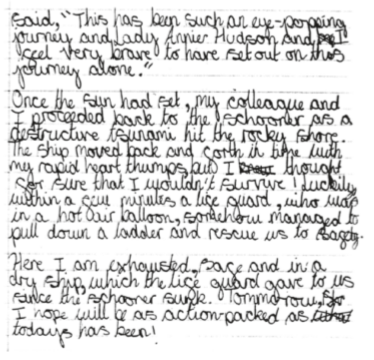 said, "This has been such an eye-popping
journey and Lady Annier Hudson and I
feel very brave to have set out on this
journey alone."
Once the sun had set, my colleague and
I proceeded back to the schooner as a
destructive tsunami hit the rocky shore.
The ship moved back and forth in time with
my rapid heart thumps, but I thought
for sure that I wouldn't survive! Luckily,
within a few minutes a life guard, who was
in a hot air balloon, somehow managed to
pull down a ladder and rescue us to safety.
Here I am exhausted, safe and in a
dry ship, which the life guard gave to us
since the schooner sunk. Tommorow,
I hope will be as action-packed as
todays has been!